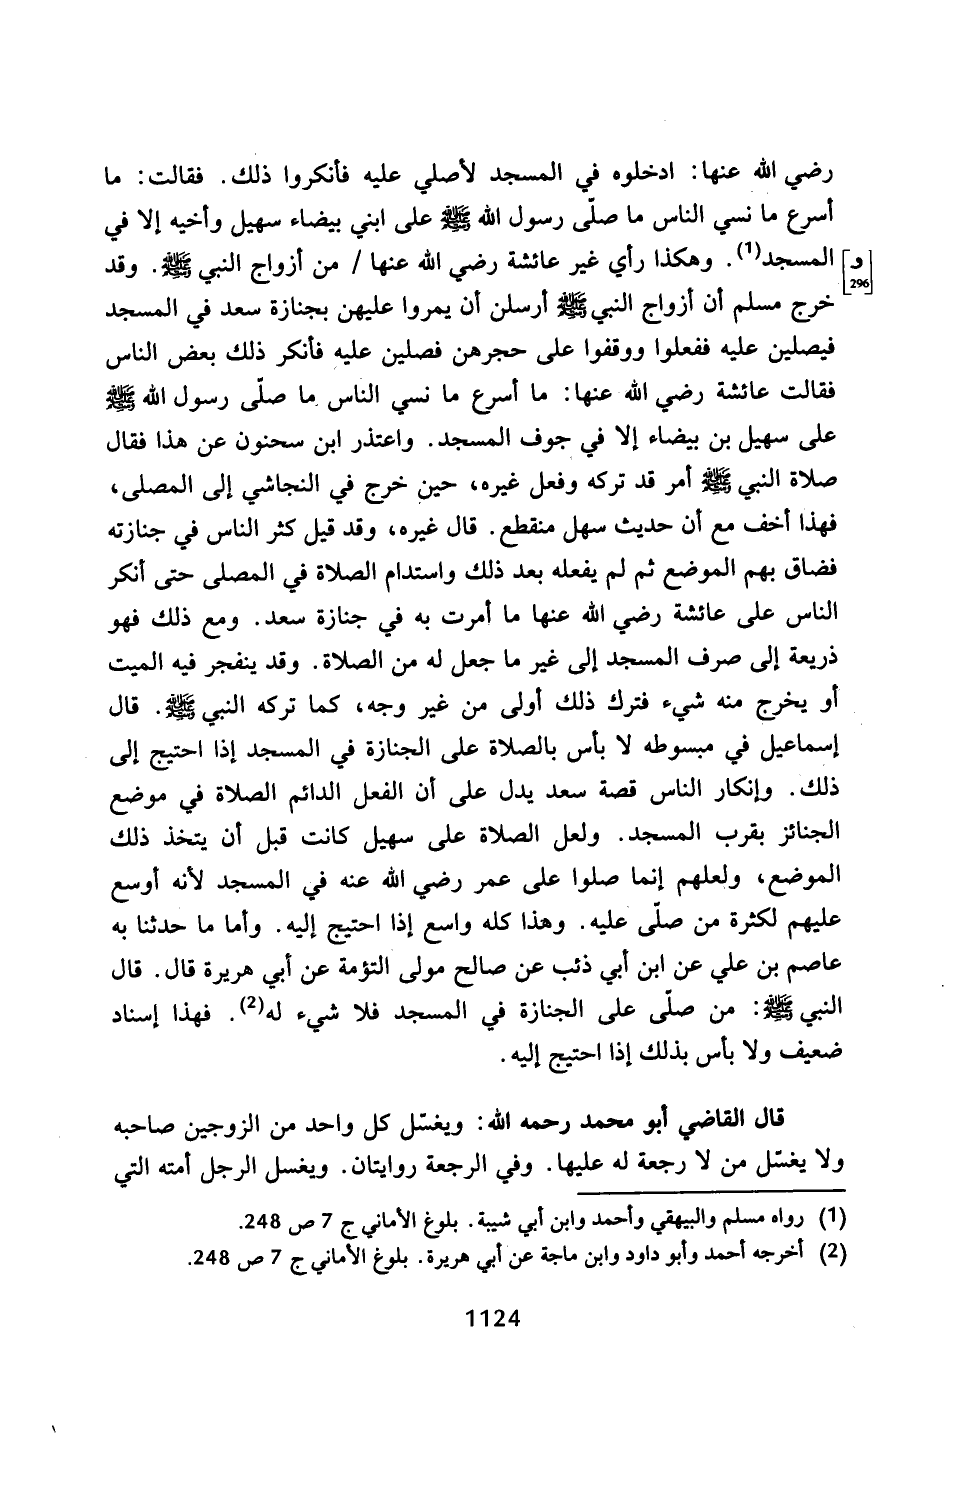 رضي الله عنها: ادخلوه في المسجد لأصلي عليه فأنكروا ذلك. فقالت: ما
أسرع ما نسي الناس ما صلّى رسول الله ﷺ على ابني بيضاء سهيل وأخيه إلا في
المسجد(1). وهكذا رأي غير عائشة رضي الله عنها / من أزواج النبي ﷺ. وقد
[و 296]
خرج مسلم أن أزواج النبي ﷺ أرسلن أن يمروا عليهن بجنازة سعد في المسجد
فيصلين عليه ففعلوا ووقفوا على حجرهن فصلين عليه فأنكر ذلك بعض الناس
فقالت عائشة رضي الله عنها: ما أسرع ما نسي الناس ما صلّى رسول الله ﷺ
على سهيل بن بيضاء إلا في جوف المسجد. واعتذر ابن سحنون عن هذا فقال
صلاة النبي ﷺ أمر قد تركه وفعل غيره، حين خرج في النجاشي إلى المصلى،
فهذا أخف مع أن حديث سهل منقطع. قال غيره، وقد قيل كثر الناس في جنازته
فضاق بهم الموضع ثم لم يفعله بعد ذلك واستدام الصلاة في المصلى حتى أنكر
الناس على عائشة رضي الله عنها ما أمرت به في جنازة سعد. ومع ذلك فهو
ذريعة إلى صرف المسجد إلى غير ما جعل له من الصلاة. وقد ينفجر فيه الميت
أو يخرج منه شيء فترك ذلك أولى من غير وجه، كما تركه النبي ﷺ. قال
إسماعيل في مبسوطه لا بأس بالصلاة على الجنازة في المسجد إذا احتيج إلى
ذلك. وإنكار الناس قصة سعد يدل على أن الفعل الدائم الصلاة في موضع
الجنائز بقرب المسجد. ولعل الصلاة على سهيل كانت قبل أن يتخذ ذلك
الموضع، ولعلهم إنما صلوا على عمر رضي الله عنه في المسجد لأنه أوسع
عليهم لكثرة من صلّى عليه. وهذا كله واسع إذا احتيج إليه. وأما ما حدثنا به
عاصم بن علي عن ابن أبي ذئب عن صالح مولى التؤمة عن أبي هريرة قال. قال
النبي ﷺ: من صلّى على الجنازة في المسجد فلا شيء له(2). فهذا إسناد
ضعيف ولا بأس بذلك إذا احتيج إليه.
قال القاضي أبو محمد رحمه الله: ويغسّل كل واحد من الزوجين صاحبه
ولا يغسّل من لا رجعة له عليها. وفي الرجعة روايتان. ويغسل الرجل أمته التي
(1) رواه مسلم والبيهقي وأحمد وابن أبي شيبة. بلوغ الأماني ج 7 ص 248.
(2) أخرجه أحمد وأبو داود وابن ماجة عن أبي هريرة. بلوغ الأماني ج 7 ص 248.
1124